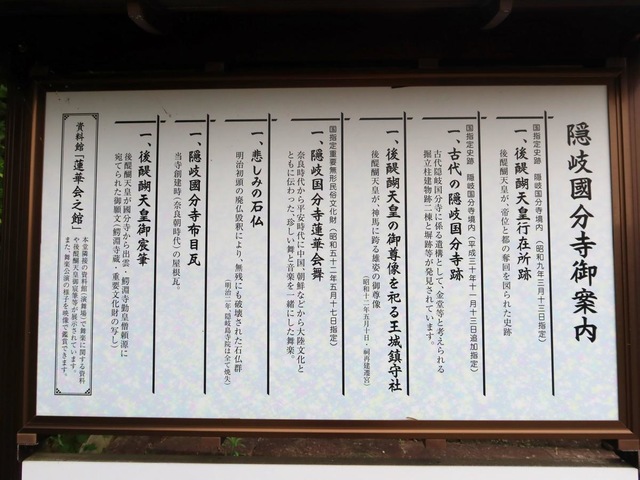 隠岐國分寺御案内
国指定史跡　隠岐国分寺境内　(昭和九年三月十三日指定)
一、後醍醐天皇行在所跡
後醍醐天皇が、帝位と都の奪回を図られた史跡
国指定史跡　隠岐国分寺境内(平成三十年十一月十三日追加指定)
一、古代の隠岐国分寺跡
古代隠岐国分寺に係る遺構として、金堂等と考えられる
掘立柱建物跡二棟と塀跡等が発見されています。
一、後醍醐天皇の御尊像を祀る王城鎮守社
後醍醐天皇が、神馬に跨る雄姿の御尊像
(昭和十二年五月十日・祠再建遷宮)
国指定重要無形民俗文化財(昭和五十二年五月十七日指定)
一、隠岐国分寺蓮華会舞
奈良時代から平安時代に中国、朝鮮などから大陸文化と
ともに伝わった、珍しい舞と音楽を一緒にした舞楽。
一、悲しみの石仏
明治初頭の廃仏毀釈により、無残にも破壊された石仏群
(明治二年 隠岐島寺院は全て焼失)
一、隠岐國分寺布目瓦
当寺創建時(奈良朝時代)の屋根瓦。
一、後醍醐天皇御宸筆
後醍醐天皇が國分寺から出雲・鰐淵寺勤皇僧頼源に
宛てられた御願文(鰐淵寺蔵・重要文化財の写し)
資料館「蓮華会之館」
本堂隣接の資料館(演舞場)で舞楽に関する資料
や後醍醐天皇御宸筆等が展示されています。
また、舞楽公演の様子を映像で鑑賞できます。